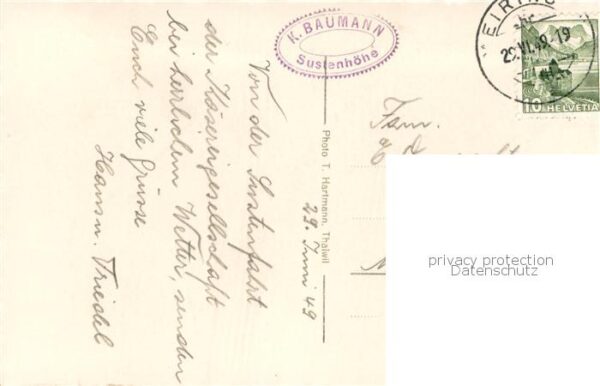 K. BAUMANN
Sustenhöhe
EIRING
29.VI.49.-19
10 HELVETIA
Photo T. Hartmann, Thalwil
29. Juni 49
Von der Sustenfahrt
der Käsereigesellschaft
bei herrlichem Wetter, senden
Euch viele Grüsse
Hans u. Friedel
Fam.
privacy protection
Datenschutz